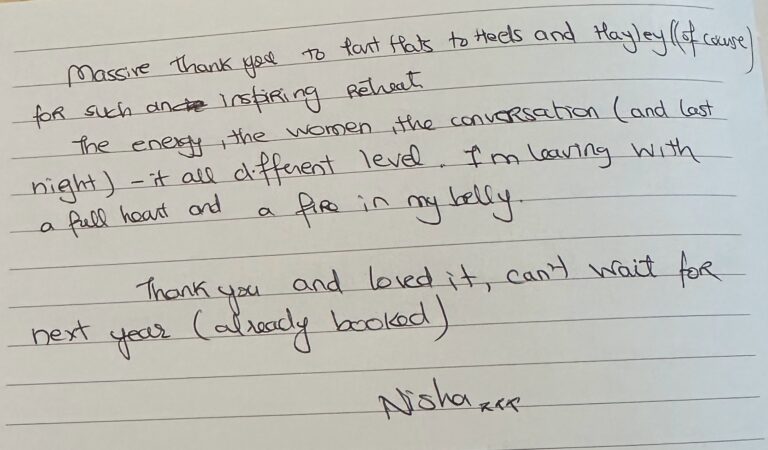 Massive thank you to Fart flats to Heels and Hayley (of couse)
for such an inspiring Retreat
The energy, the women, the conversation (and last
night) - it all different level. I'm leaving with
a full heart and a fire in my belly.
Thank you and loved it, can't wait for
next year (already booked)
Nisha xxx